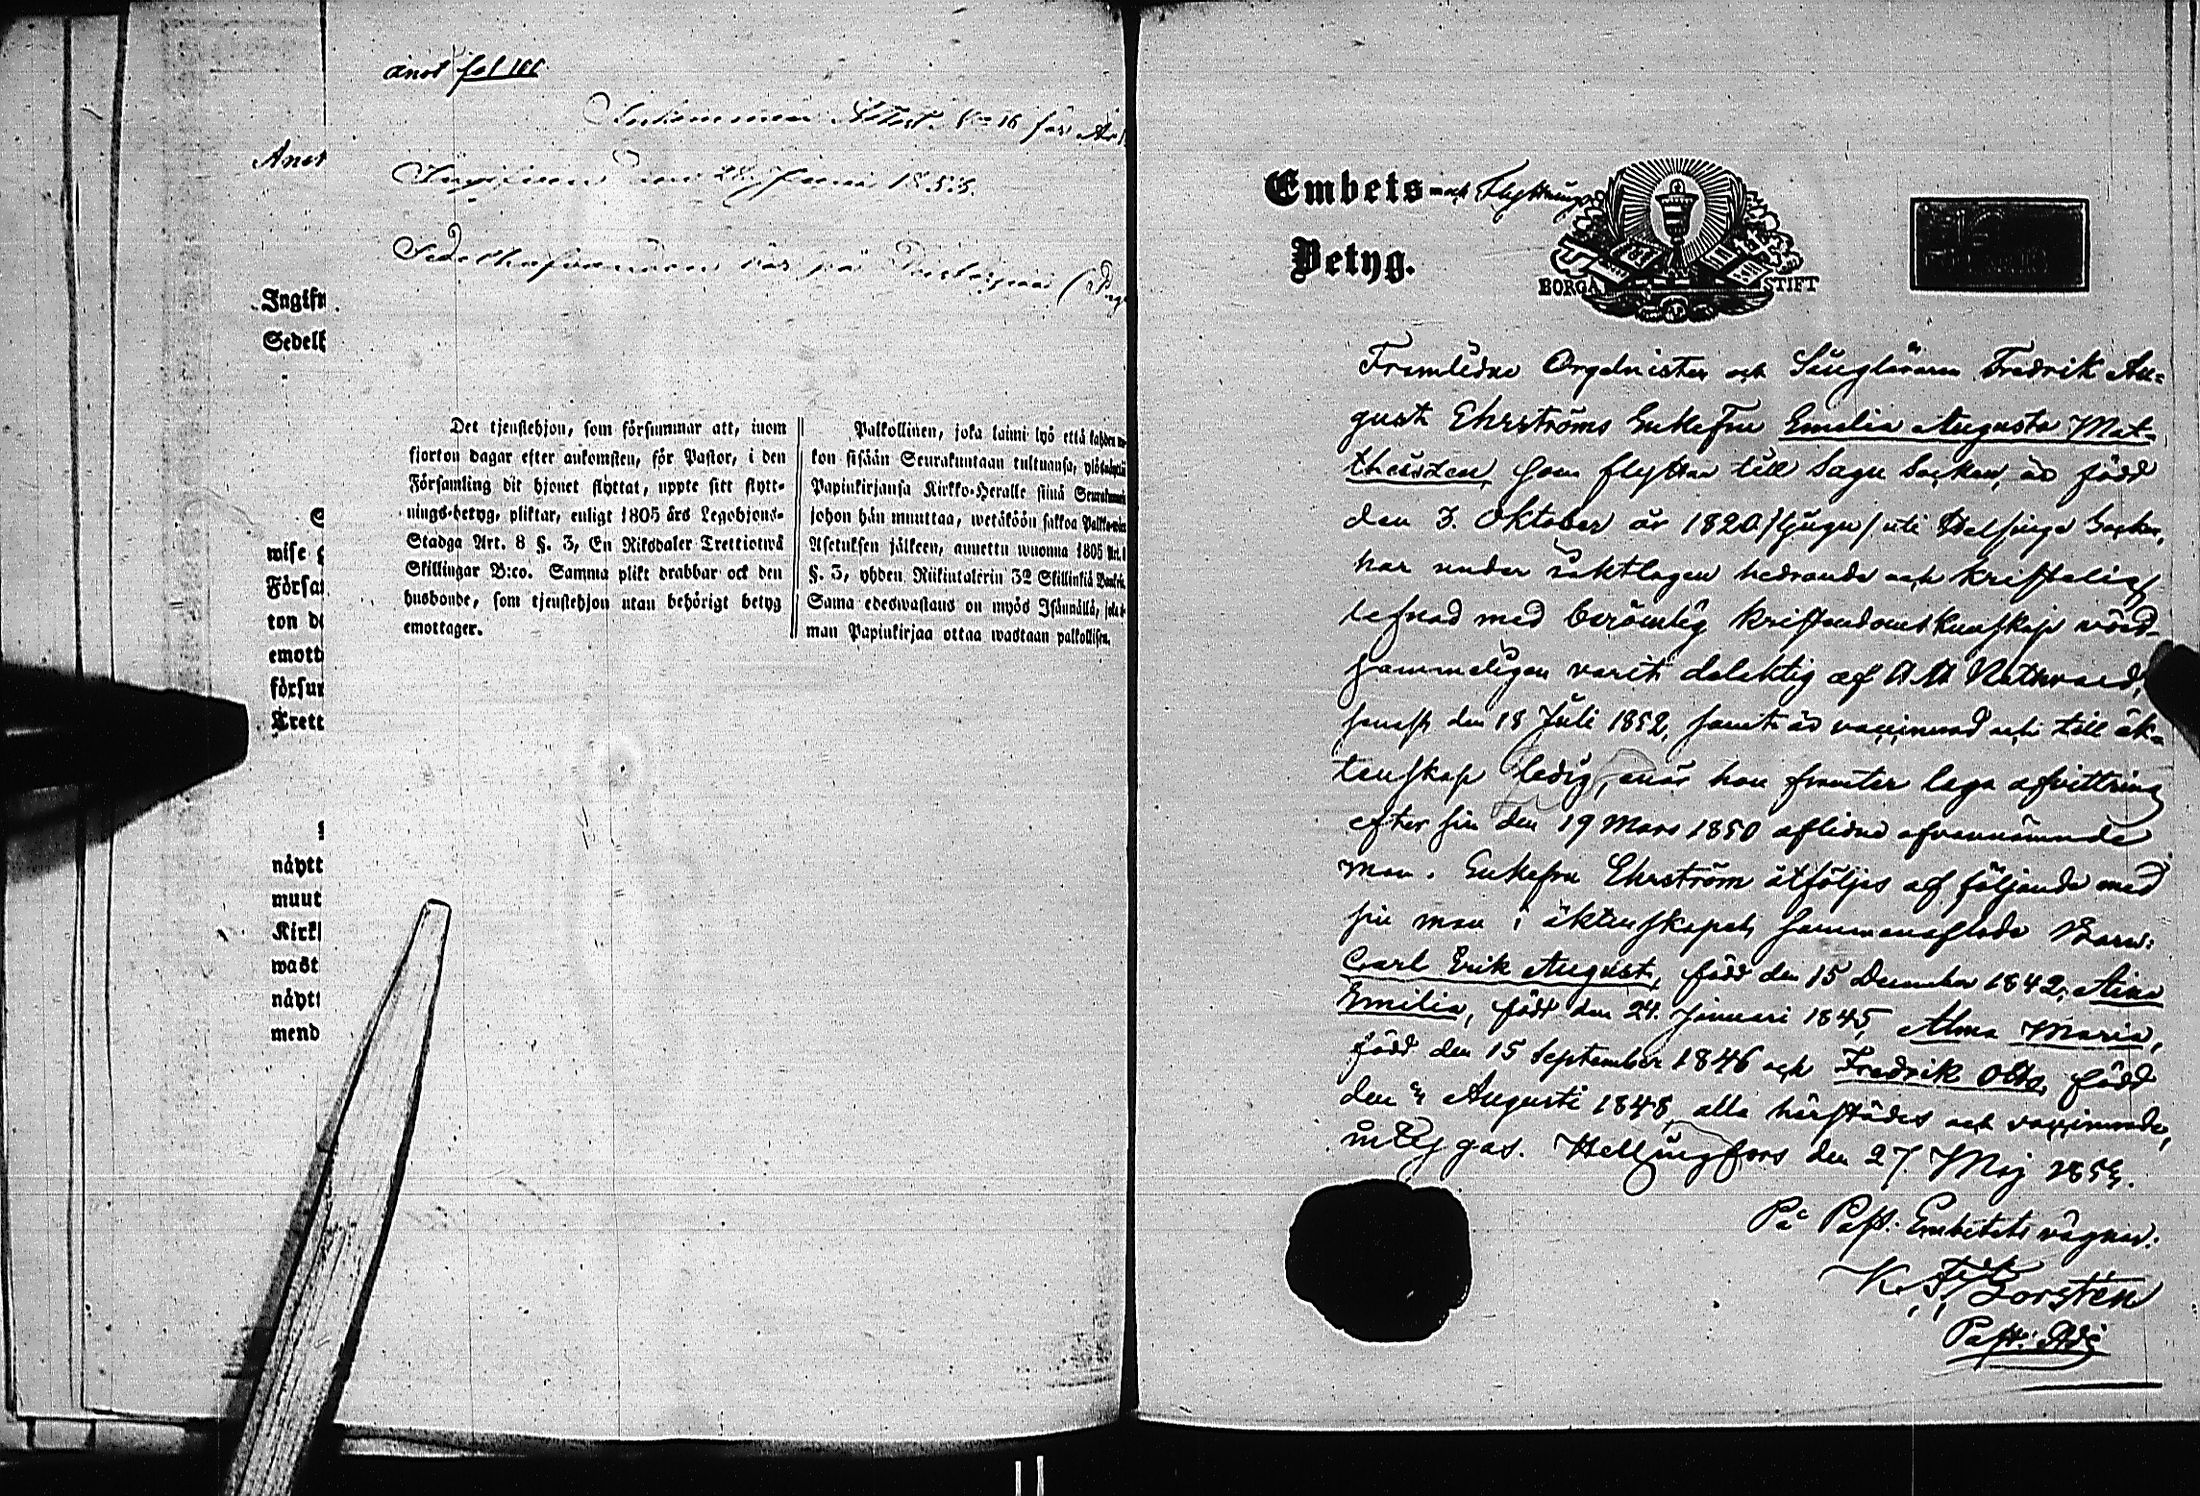 anot fol 101
Inkommen Attest No 16 för År
Ingifven den 28 Juni 1853.
Sedelhafvanden bor på
Anot
Ingifv
Sedelh
wise
Försa
ton d
emott
försum
Trett
nåytt
muut
Kirk
wast
nåytt
mend
Det tjenstehjon, som försummar att, inom
fjorton dagar efter ankomsten, för Pastor, i den
Församling dit hjonet flyttat, uppte sitt flytt-
nings-betyg, pliktar, enligt 1805 års Legohjons-
Stadga Art. 8 §. 3, En Riksdaler Trettiotwå
Skillingar B:co. Samma plikt drabbar ock den
husbonde, som tjenstehjon utan behörigt betyg
emottager.
Palkollinen, joka laimi lyö että kahden
kon sisään Seurakuntaan tultuansa, ylösnäyttää
Papinkirjansa Kirkko-Herralle siinä Seurakunnassa
johon hän muuttaa, wetäköön sakkoa Palkowäen
Asetuksen jälkeen, annettu wuonna 1805 Art.
§. 3, yhden Riikintalerin 32 Skillinkiä
Sama edeswastaus on myös Isännällä, joka
man Papinkirjaa ottaa wastaan palkollisen.
Embets och Flyttnings
Betyg.
BORGÅ STIFT
Framlidne Organisten och Sångläraren Fredrik Au=
gust Ehrströms Enkefru Emelia Augusta Mat-
theiszen, som flyttar till Sagu Socken, är född
den 3. Oktober år 1820 /tjugu/ uti Helsinge Socken,
har under iakttagen hedrande och kristelig
lefnad med berömlig kristendomskunskap vörd-
sammeligen varit delaktig af H. H. Nattvard,
senast den 18 Juli 1852, samt är vaccinerad och till äk=
tenskap ledig, enär hon framter laga afvittring
efter sin den 19 Mars 1850 aflidne ofvannämnde
man. Enkefru Ehrström åtföljes af följande med
sin man i äktenskapet sammanaflade Barn:
Carl Erik August, född den 15 December 1842, Aina
Emilia, född den 24. Januari 1845, Alma Maria,
född den 15 September 1846 och Fredrik Otto, född
den 4 Augusti 1848, alla härstädes och vaccinerade,
intygas. Helsingfors den 27 Maj 1853.
På Past. Embetets vägnar:
K. F. Borgstén
Past: Adj